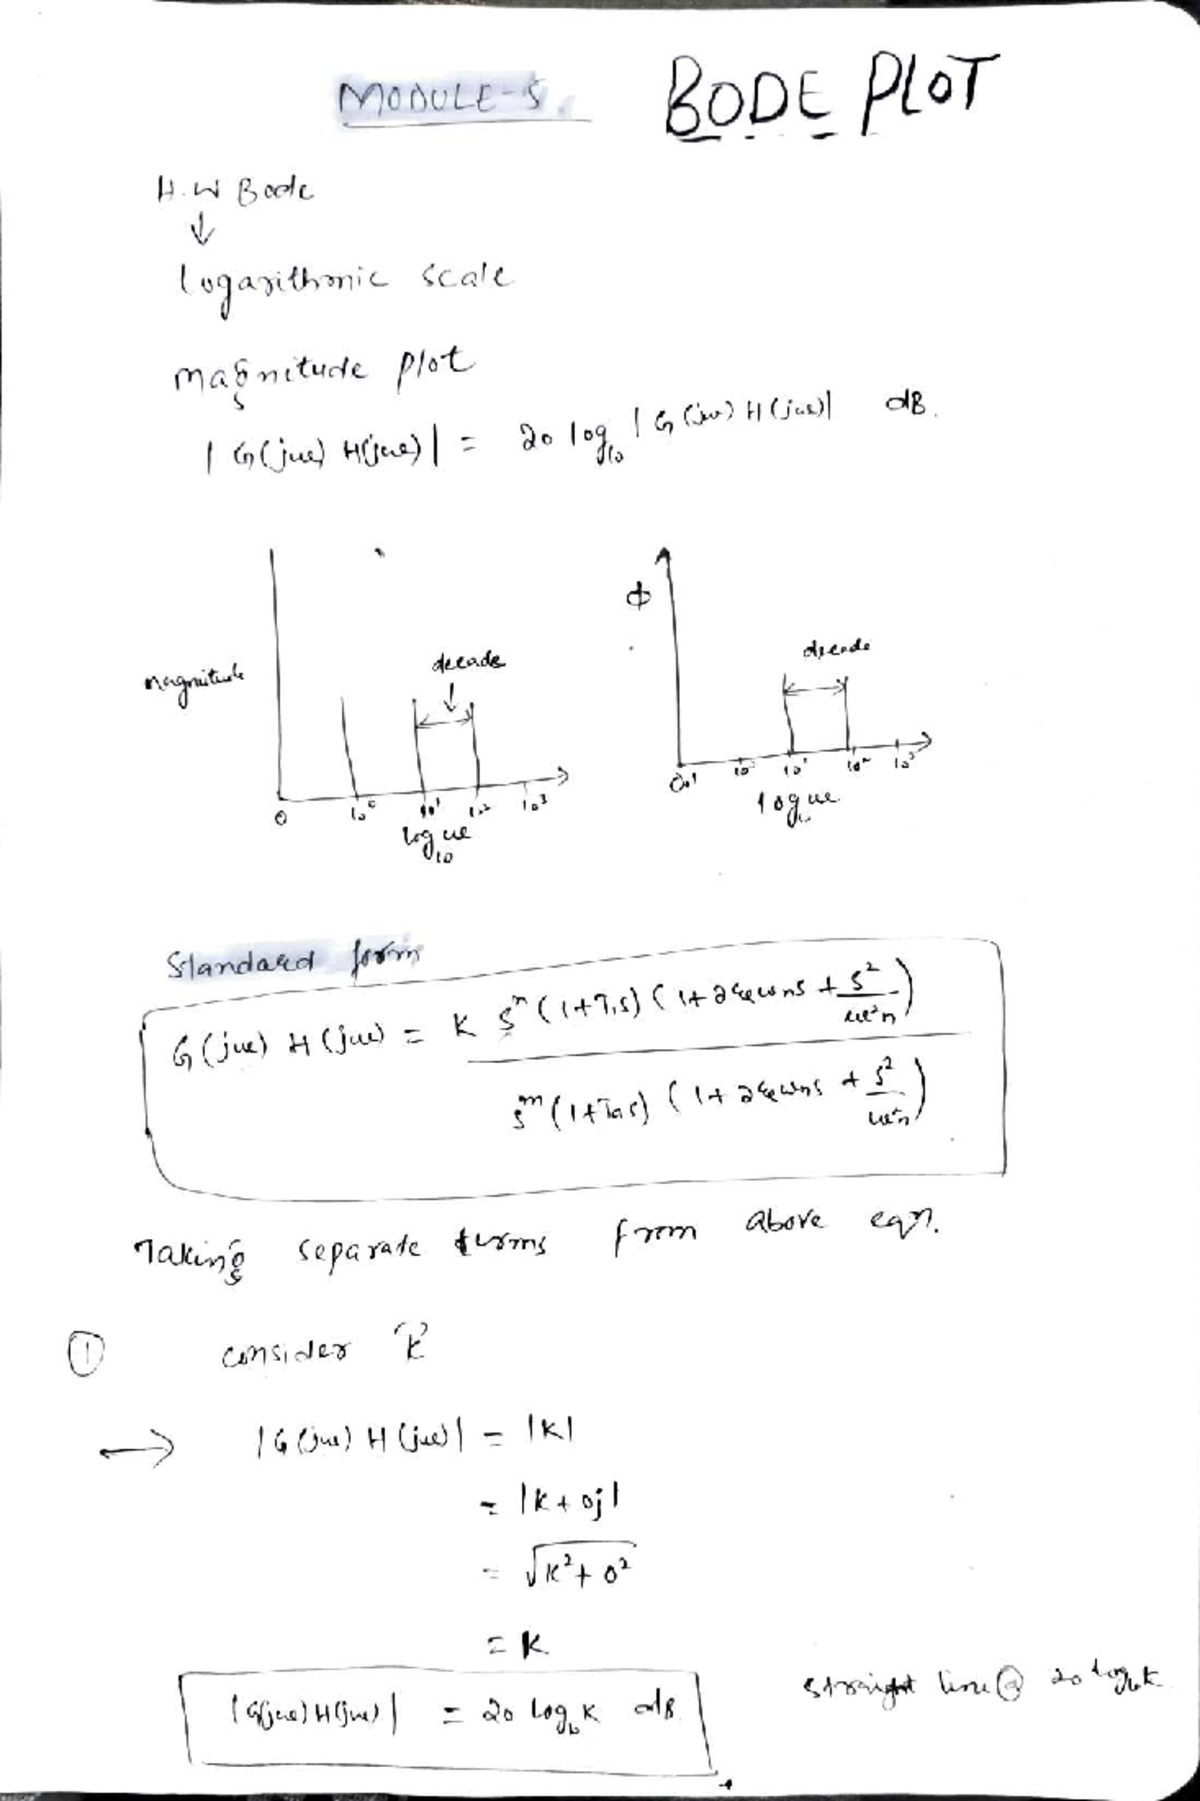 MODULE-5. BODE PLOT
H.W Bode
↓
logarithmic scale
magnitude plot
| G(jω) H(jω) | = 20 log₁₀ | G(jω) H(jω)| dB.
magnitude
decade
0 10⁰ 10¹ 10² 10³
log ω
10
ϕ
decade
0.1 10⁰ 10¹ 10² 10³
log ω
10
Standard form
G(jω) H(jω) = K Sⁿ (1+T₁s) (1+2ξωns + S²/ω²n)
Sᵐ (1+Tas) (1+2ξωns + S²/ω²n)
Taking separate terms from above eqn.
① consider 'K'
→ |G(jω) H(jω)| = |K|
= |K + 0j|
= √K² + 0²
= K
|G(jω) H(jω)| = 20 log₁₀ K dB
straight line @ 20 log₁₀ K